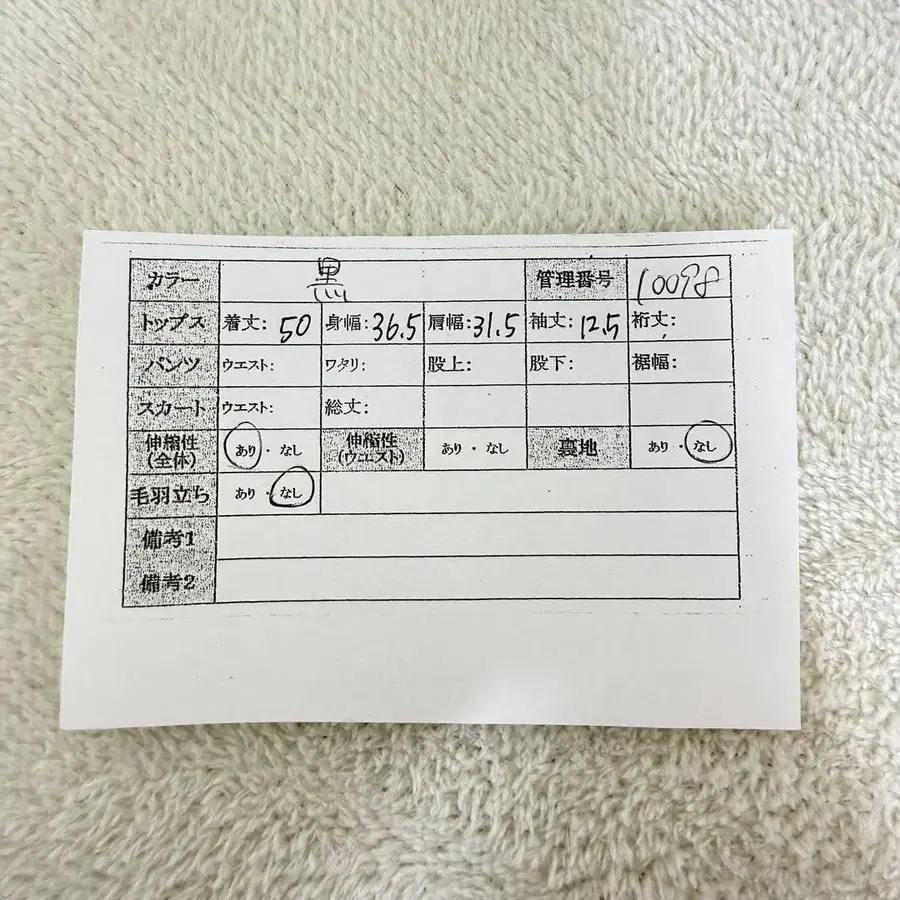 カラー 黒 管理番号 10098
トップス 着丈: 50 身幅: 36.5 肩幅: 31.5 袖丈: 12.5 裄丈:
パンツ ウエスト: ワタリ: 股上: 股下: 裾幅:
スカート ウエスト: 総丈:
伸縮性(全体) あり・なし 伸縮性(ウエスト) あり・なし 裏地 あり・なし
毛羽立ち あり・なし
備考1
備考2